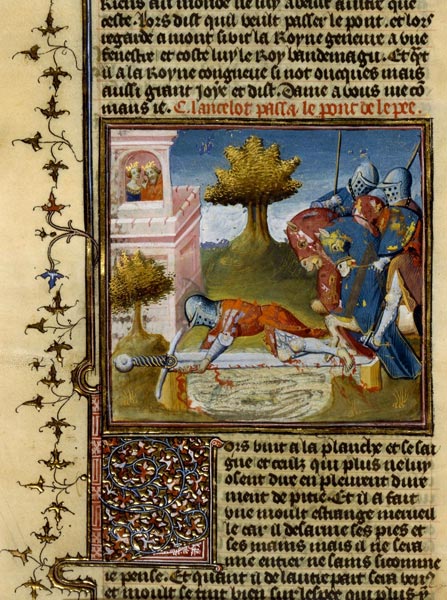 riens au monde ne luy avient autrie que
ceste. Lors dist quil veult passer le pont. et lors
regarde a mont si vit la Royne genieure a une
fenestre et coste luy le Roy bandemagu. Et qnt
il a la Royne cogneue si not oncques mais
aussi grant Joye et dist. Dame a vous me co
mans ie. C. lancelot passa le pont de lespee.
Lors vint a la planche et se sai
gne et ceulz qui plus ne luy
osent dire en pleurent dure
ment de pitie. Et il a fait
une moult estrange merveil
le car il desarme ses pies et
ses mains mais il ne sera
mie entier ne sains si comme
ie pense. Et quant il de lautre part sera venu
et moult se tint bien sur lespee qui plus